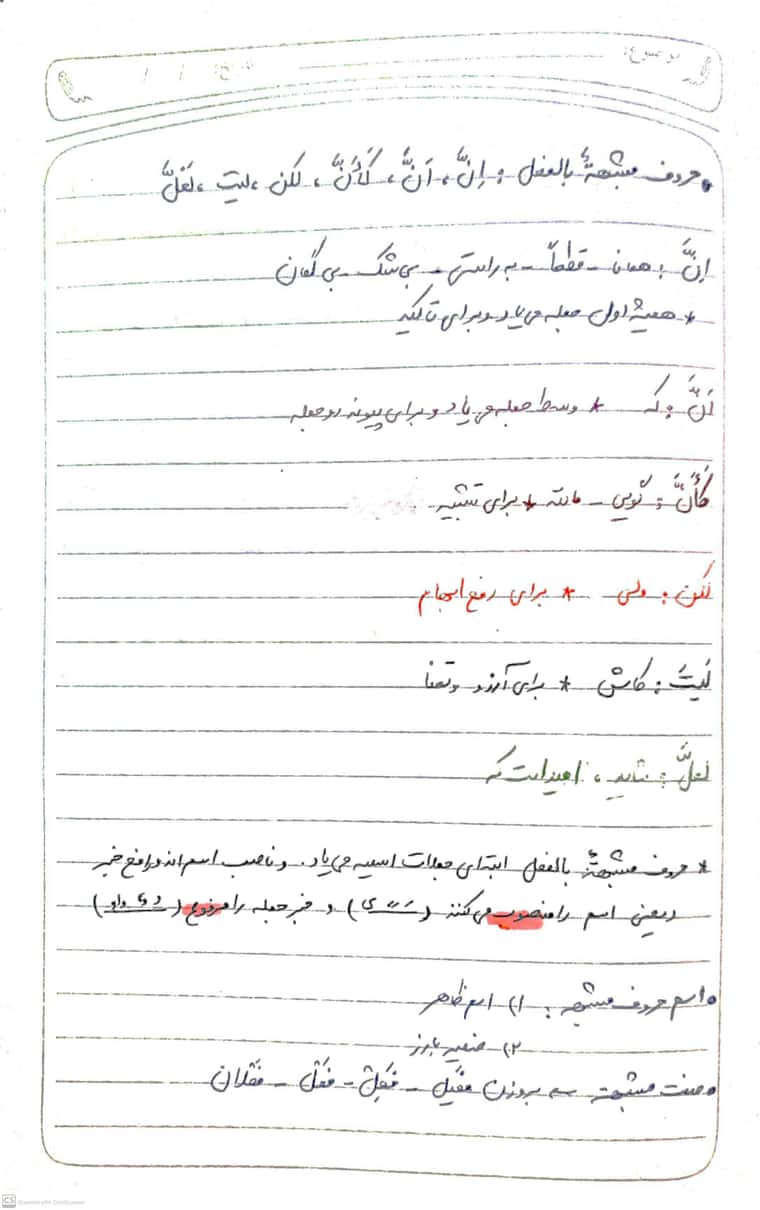 موضوع:
تاریخ: / /
• حروف مشبهةٌ بالفعل : إِنَّ ، أَنَّ ، كَأَنَّ ، لكن ، ليت ، لَعَلَّ
إِنَّ : همانا - قطعاً - به راستی - بی شک - بی گمان
* همیشه اول جمله می یاد و برای تاکید
أَنَّ : که * وسط جمله می یاد و برای پیوند دو جمله
كَأَنَّ : گویی - مانند * برای تشبیه
لكن : ولی * برای رفع ابهام
لَيتَ : کاش * برای آرزو و تمنا
لَعَلَّ : شاید ، امید است که
* حروف مشبهةٌ بالفعل ابتدای جملات اسمیه می یاد . و ناصب اسم اند و رافع خبر
یعنی اسم را منصوب می کنند ( ـَـً ی ) و خبر جمله را مرفوع ( ـُـٌ واو )
• اسم حروف مشبهه : ۱) اسم ظاهر
۲) ضمیر بارز
• صفت مشبهة ← بر وزن فَعیل - فَعِل - فَعْل - فَعْلان
CS Scanned with CamScanner